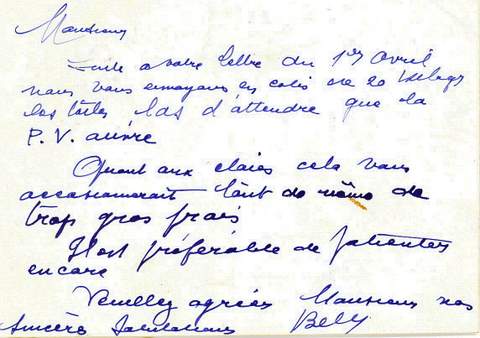 Monsieur
Suite a votre lettre du 1er Avril
nous vous envoyons en colis de 20 kilogs
les toiles las d'attendre que la
P.V. ouvre
Quant aux claies cela vous
occasionnerait tout de même de
trop gros frais
Il est préférable de patienter
encore
Veuillez agréer Monsieur nos
sincères salutations